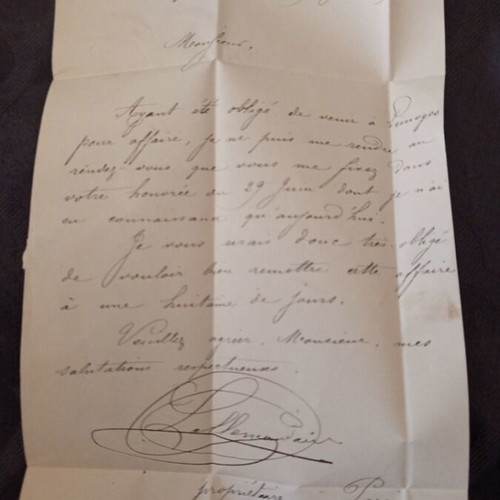 Monsieur,
Ayant été obligé de venir à Limoges
pour affaire, je ne puis me rendre au
rendez-vous que vous me fixez dans
votre honorée du 29 Juin dont je n'ai
eu connaissance qu'aujourd'hui.
Je vous serais donc très obligé
de vouloir bien remettre cette affaire
à une huitaine de jours.
Veuillez agréer, Monsieur, mes
salutations respectueuses.
propriétaire